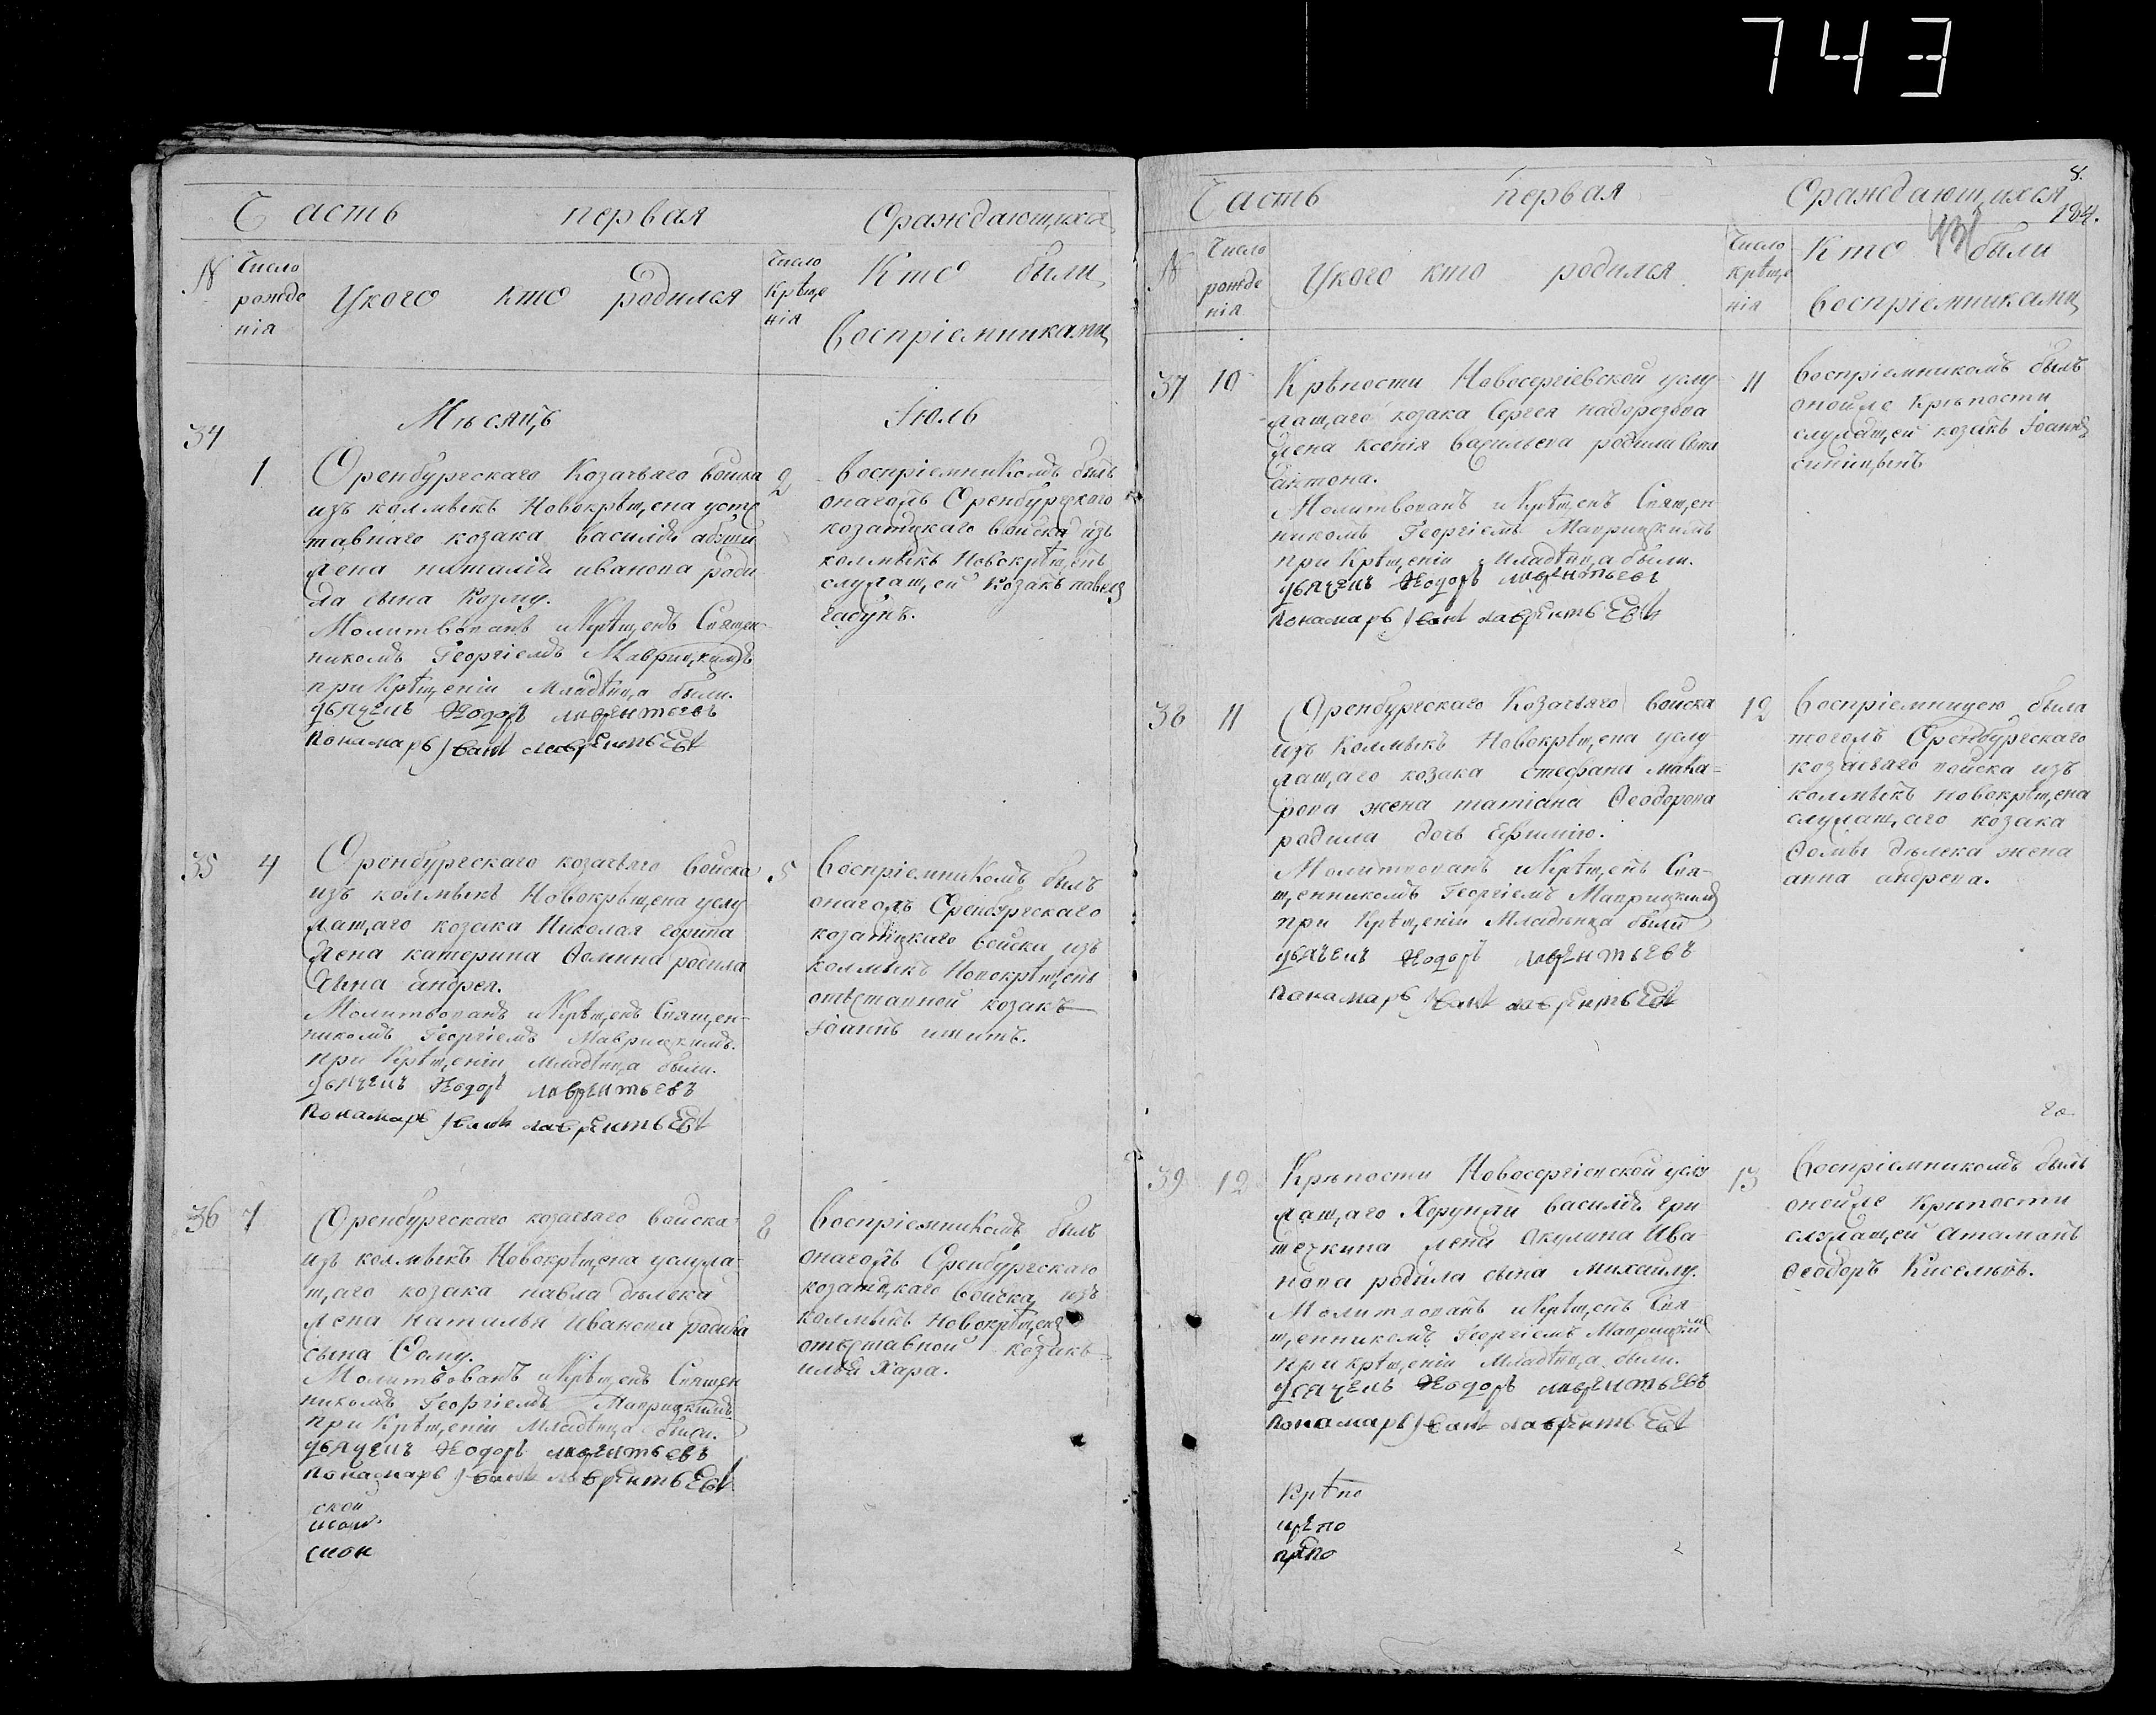 743
Часть первая Ораждающихся
№ Число рожде нія
Укого кто родился
Число Крѣще нія
Кто были воспріемниками
Мѣсяцъ Іюль
34
1
Оренбургскаго Козачьяго войска
изъ колмыкъ Новокрѣщена уотс
тавнаго козака василія
жена наталія иванова роди
ла сына Козму.
Молитвованъ и Крѣщенъ Священ
никомъ Георгіемъ Маврицкимъ
при Крѣщеніи Младѣнца были.
дьячекъ Ѳеодоръ лаврентьевъ
Пономарь Іванъ лаврентьевъ
2
воспріемникомъ былъ
онагожъ Оренбургскаго
козатцкаго войска изъ
колмыкъ Новокрѣщенъ
служащей козакъ павелъ
35
4
Оренбургскаго козачьяго войска
изъ колмыкъ Новокрѣщена услу
жащаго козака Николая горина
жена катерина Ѳомина родила
сына андрея.
Молитвованъ и Крѣщенъ Священ-
никомъ Георгіемъ Маврицкимъ.
при Крѣщеніи младѣнца были.
дьячекъ Ѳеодоръ лаврентьевъ
Пономарь Іванъ лаврентьевъ
5
воспріемникомъ былъ
онагожъ Оренбургскаго
козатцкаго войска изъ
колмыкъ Новокрѣщенъ
отъставной козакъ
Іоаннъ
36
7
Оренбургскаго козачьяго войска
изъ колмыкъ Новокрѣщена услужа
щаго козака павла дѣлека
жена Наталья Иванова родила
сына Ѳому.
Молитвованъ и Крѣщенъ Священ
никомъ Георгіемъ Маврицкимъ
при Крѣщеніи Младѣнца были.
дьячекъ Ѳеодоръ лаврентьевъ
Пономарь Іванъ лаврентьевъ
8
воспріемникомъ былъ
онагожъ Оренбургскаго
козатцкаго войска изъ
колмыкъ Новокрѣщенъ
отъставной козакъ
илья Хара.
ской
8.
184.
Часть первая Ораждающихся
№ Число рожде нія
Укого кто родился
Число Крѣще нія
Кто были воспріемниками
37
10
Крѣпости Новосергіевской услу
жащаго козака Сергея надорезова
жена ксенія васильева родила сына
антона.
Молитвованъ и Крѣщенъ Священ
никомъ Георгіемъ Маврицкимъ
при Крѣщеніи Младѣнца были.
дьячекъ Ѳеодоръ лаврентьевъ
Пономарь Іванъ лаврентьевъ
11
воспріемникомъ былъ
онойже Крѣпости
служащей козакъ Іоаннъ
синицынъ
38
11
Оренбургскаго Козачьяго войска
изъ Колмыкъ Новокрѣщена услу
жащаго козака стефана мака-
рова жена татіана Ѳеодорова
родила дочь Ефимію.
Молитвованъ и Крѣщенъ Свя-
щенникомъ Георгіемъ Маврицкимъ
при Крѣщеніи Младѣнца были
дьячекъ Ѳеодоръ лаврентьевъ
Пономарь Іванъ лаврентьевъ
12
воспріемницею была
тогожъ Оренбургскаго
козачьяго войска изъ
колмыкъ новокрѣщена
служащаго козака
Ѳомы дѣлека жена
анна андрева.
го
39
12
Крѣпости Новосергіевской услу
жащаго Хорунжи василія гри
шечкина жена Окулина Ива-
нова родила сына Михаилу.
Молитвованъ и Крѣщенъ Свя-
щенникомъ Георгіемъ Маврицкимъ
при крѣщеніи Младѣнца были.
дьячекъ Ѳеодоръ лаврентьевъ
Пономарь Іванъ лаврентьевъ
13
воспріемникомъ былъ
онойже Крѣпости
служащей атаманъ
Ѳеодоръ Киселевъ.
Крѣпо